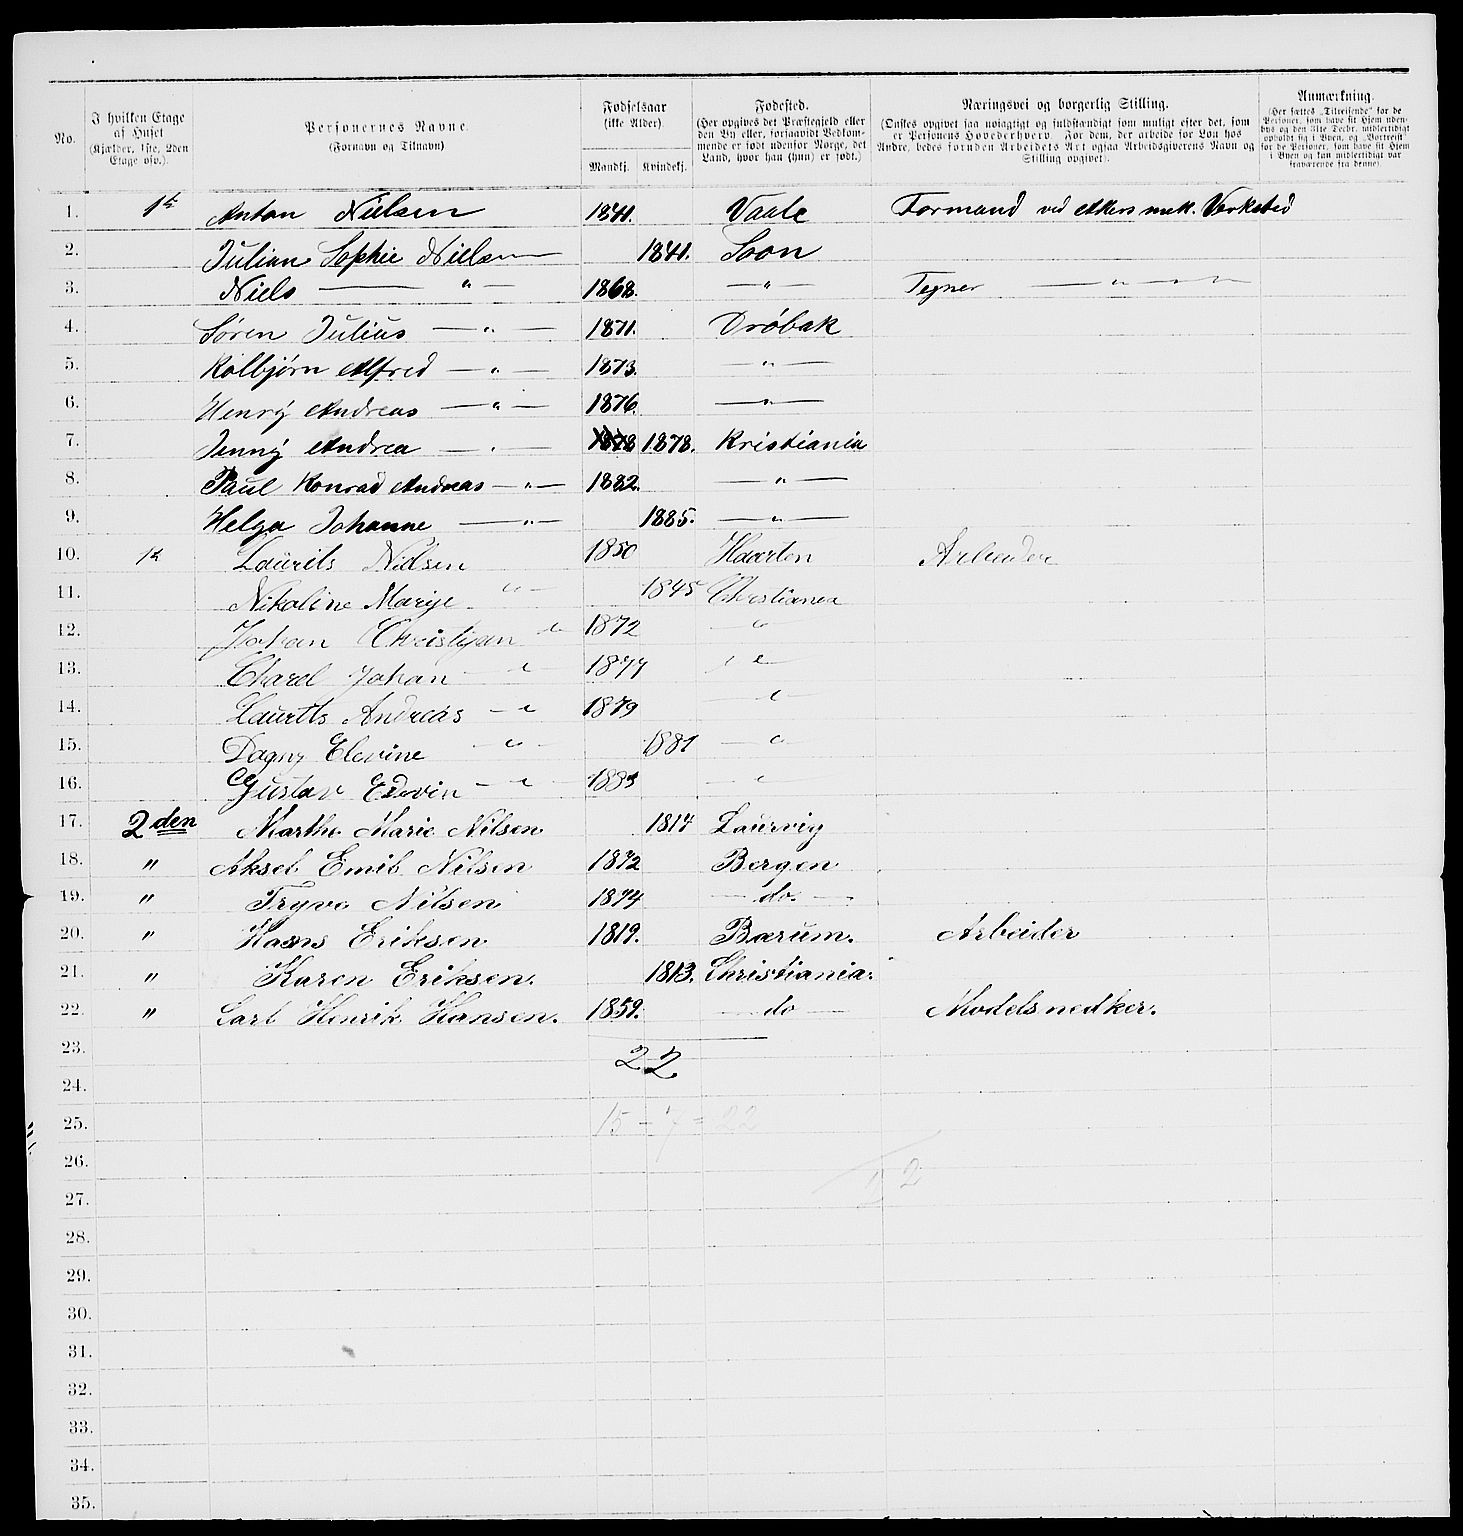 No.
I hvilken Etage af Huset (Kjælder, 1ste, 2den Etage osv.).
Personernes Navne. (Fornavn og Tilnavn)
Fødselsaar (ikke Alder). Mandkj. Kvindekj.
Fødested. (Her opgives det Præstegjeld eller den By eller, forsaavidt Vedkommende er født udenfor Norge, det Land, hvor han (hun) er født.)
Næringsvei og borgerlig Stilling. (Ønskes opgivet saa nøiagtigt og fuldstændigt som muligt efter det, som er Personens Hovederhverv. For dem, der arbeide for Løn hos Andre, bedes foruden Arbeidets Art ogsaa Arbeidsgiverens Navn og Stilling opgivet).
Anmærkning. (Her sættes „Tilreisende" for de Personer, som have sit Hjem udenbys og den 31te Decbr. midlertidigt opholdt sig i Byen, og „Bortreist" for de Personer, som have sit Hjem i Byen og kun midlertidigt var fraværende fra denne).
1. 1st Anton Nielsen 1841. Vaale Formand ved Akers mek. Verksted
2. Julian Sophie Nielsen 1841. Soon
3. Niels — " — 1868. — " — Tegner — " —
4. Søren Julius — " — 1871. Drøbak
5. Kolbjørn Alfred — " — 1873. — " —
6. Henry Andreas — " — 1876. — " —
7. Jenny Andrea — " — 1878 1878. Kristiania
8. Paul Konrad Andreas — " — 1882. — " —
9. Helga Johanne — " — 1885. — " —
10. 1st Laurits Nielsen 1850 Arbeider
11. Nikoline Marije " — 1845 Christiania
12. Johan Christijan " 1872 "
13. Charel Johan — " 1877 "
14. Lauritts Andreas — " 1879 "
15. Dagny Elevine — " — 1881 — "
16. Gustav Edevin — " 1883 — "
17. 2den Marthe Marie Nilsen 1814 Laurvig
18. " Aksel Emil Nilsen 1872 Bergen
19. " Trygve Nilsen 1874 — do. —
20. " Hans Eriksen 1819. Bærum. Arbeider
21. " Karen Eriksen. 1813. Christiania.
22. " Carl Henrik Hansen. 1859. — do — Modelsnedker.
23. 22
24.
25. 15 - 7 = 22
26. 2
27.
28.
29.
30.
31.
32.
33.
34.
35.